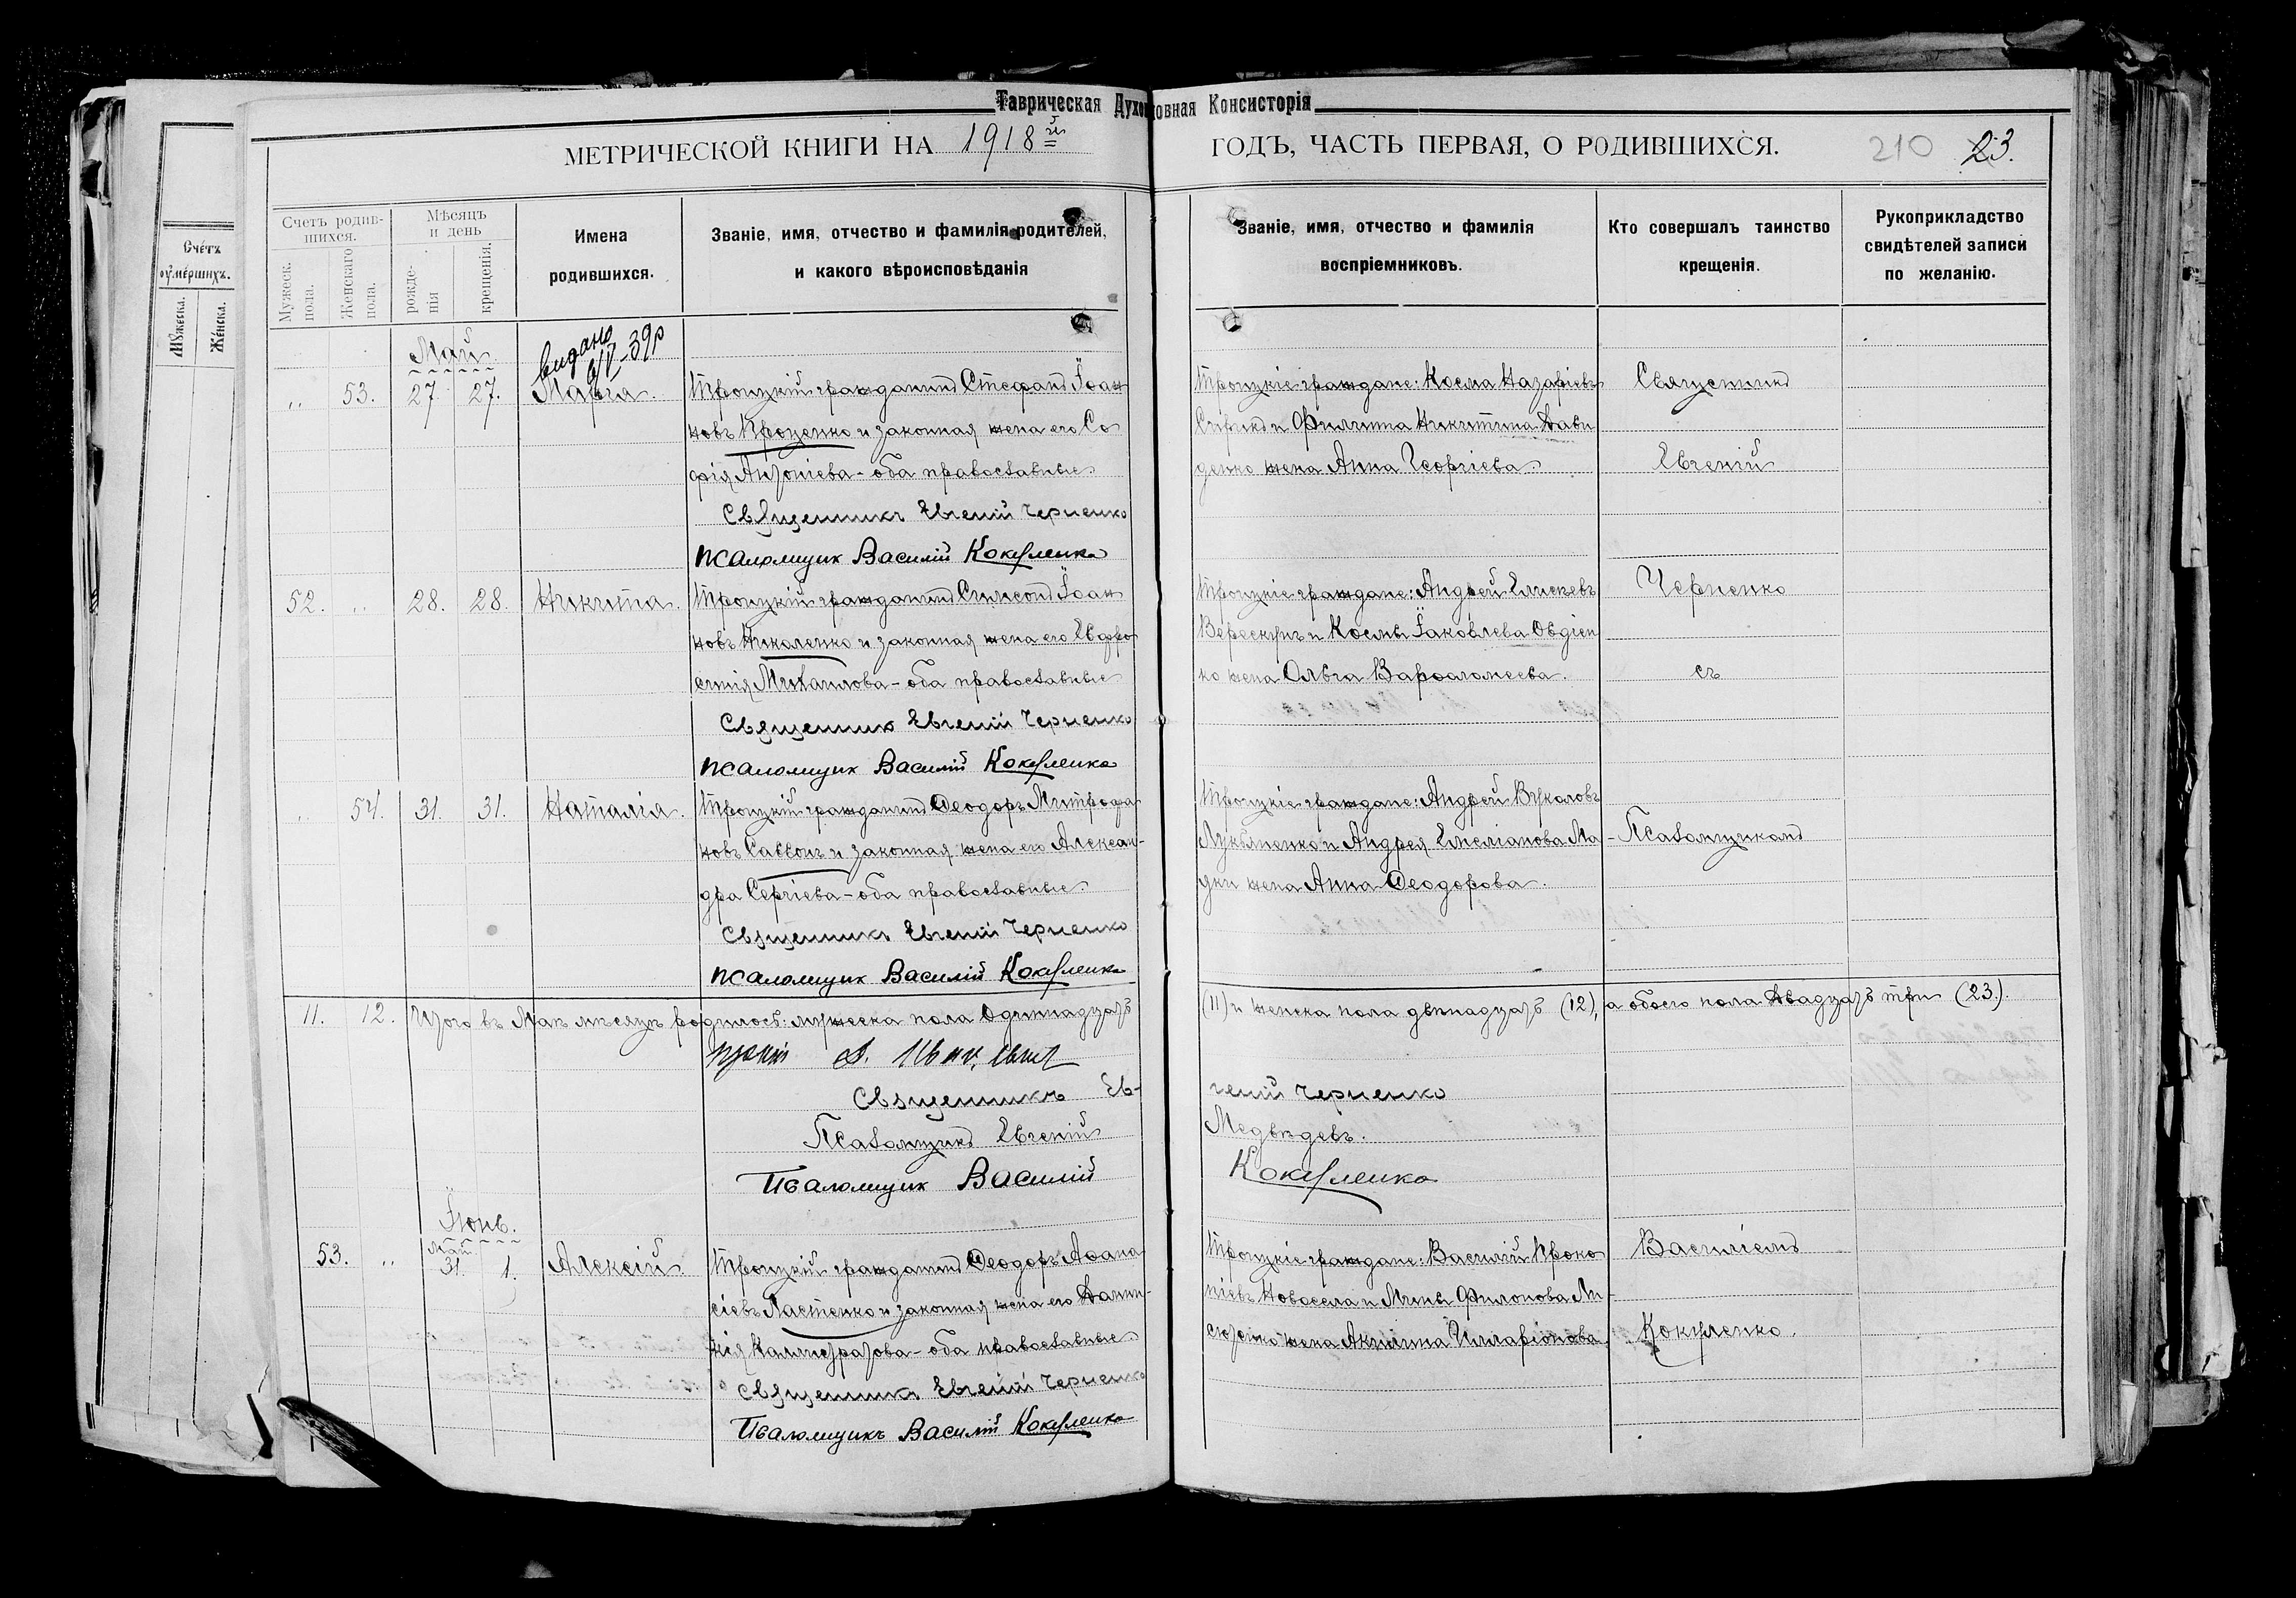 Таврическая Духовная Консисторія
МЕТРИЧЕСКОЙ КНИГИ НА 1918й ГОДЪ, ЧАСТЬ ПЕРВАЯ, О РОДИВШИХСЯ.
210 23.
Счетъ умершихъ.
Мужеска.
Женска.
Счетъ родившихся.
Мужеск. пола.
Женскаго пола.
Мѣсяцъ и день
рожденія
крещенія.
Имена родившихся.
Званіе, имя, отчество и фамилія родителей, и какого вѣроисповѣданія
Званіе, имя, отчество и фамилія воспріемниковъ.
Кто совершалъ таинство крещенія.
Рукоприкладство свидѣтелей записи по желанію.
Май.
видано
„ 53. 27. 27. Марія.
Троицкій гражданинъ Стефанъ Іоан
новъ Проценко и законная жена его Со
фія Антоніева - оба православные.
Священникъ Евгеній Черненко
псаломщик Василій Кокуленко
Троицкіе граждане: Косма Назаріевъ
и Филиппа Никитина Дави
денко жена Анна Георгіева.
Священникъ
Евгеній
52. „ 28. 28. Никита.
Троицкій гражданинъ Симеонъ Іоан
новъ Николенко и законная жена его Евфро
синія Михаилова - оба православные
Священник Евгеній Черненко
псаломщик Василій Кокуленко
Троицкіе граждане: Андрей Елисеевъ
Верескунъ и Космы Іаковлева Овдіен
ко жена Ольга Варфоломеева.
Черненко
съ
„ 54. 31. 31. Наталія.
Троицкій гражданинъ Ѳеодоръ Митрофа
новъ Саввонъ и законная жена его Алексан-
дра Сергіева - оба православные.
Священникъ Евгеній Черненко
псаломщик Василій Кокуленко
Троицкіе граждане: Андрей Вуколовъ
Лукьяненко и Андрея Емеліанова Ма-
жена Анна Ѳеодорова.
Псаломщикомъ
11. 12. Итого въ Маѣ мѣсяцѣ родилось: мужеска пола Одиннадцать (11) и женска пола двѣнадцать (12), а обоего пола Двадцать три (23).
Священникъ Евгеній Черненко
Псаломщикъ Евгеній Медвѣдевъ.
Псаломщик Василій Кокуленко
Іюнь.
Май.
53. „ 31. 1. Алексій.
Троицкій гражданинъ Ѳеодоръ Аѳана
сіевъ Ластенко и законная жена его Домни-
кія Каллистратова - оба православные
Священникъ Евгеній Черненко
Псаломщикъ Василій Кокуленко
Троицкіе граждане: Василій Проко
піевъ Новосела и Мины Филонова Ли-
жена Акилина Илларіонова.
Василіемъ
Кокуленко.